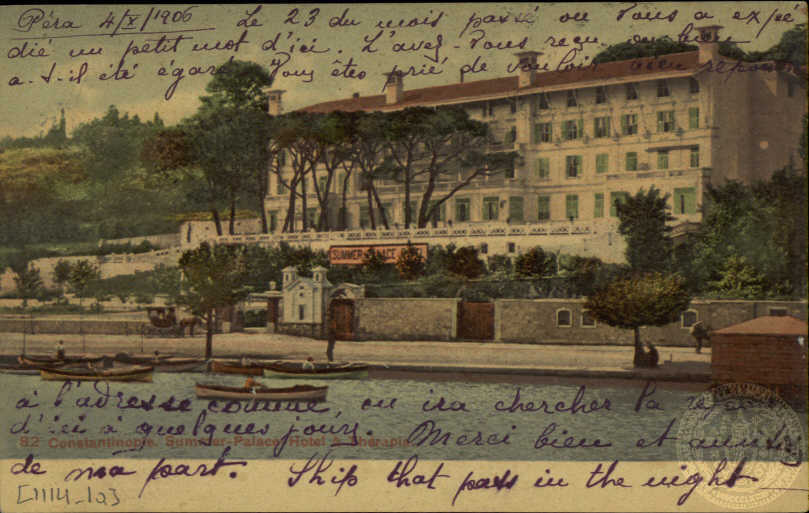 Péra 4/X/1906 Le 23 du mois passé on vous a expé
dié un petit mot d'ici. L'avez-vous reçu ou bien
a-t-il été égaré? Vous êtes prié de vouloir bien répondre
SUMMER PALACE
à l'adresse comme, on ira chercher la
d'ici à quelques jours. Merci bien et
82 Constantinople. Summer-Palace Hotel à Thérapia
de ma part. Ship that pass in the night
[1114_1a]